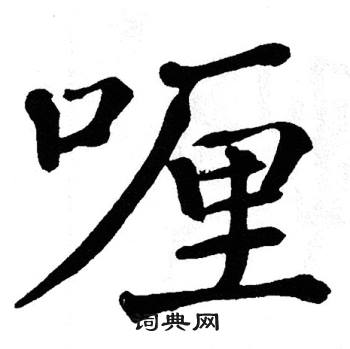 喱
词典网